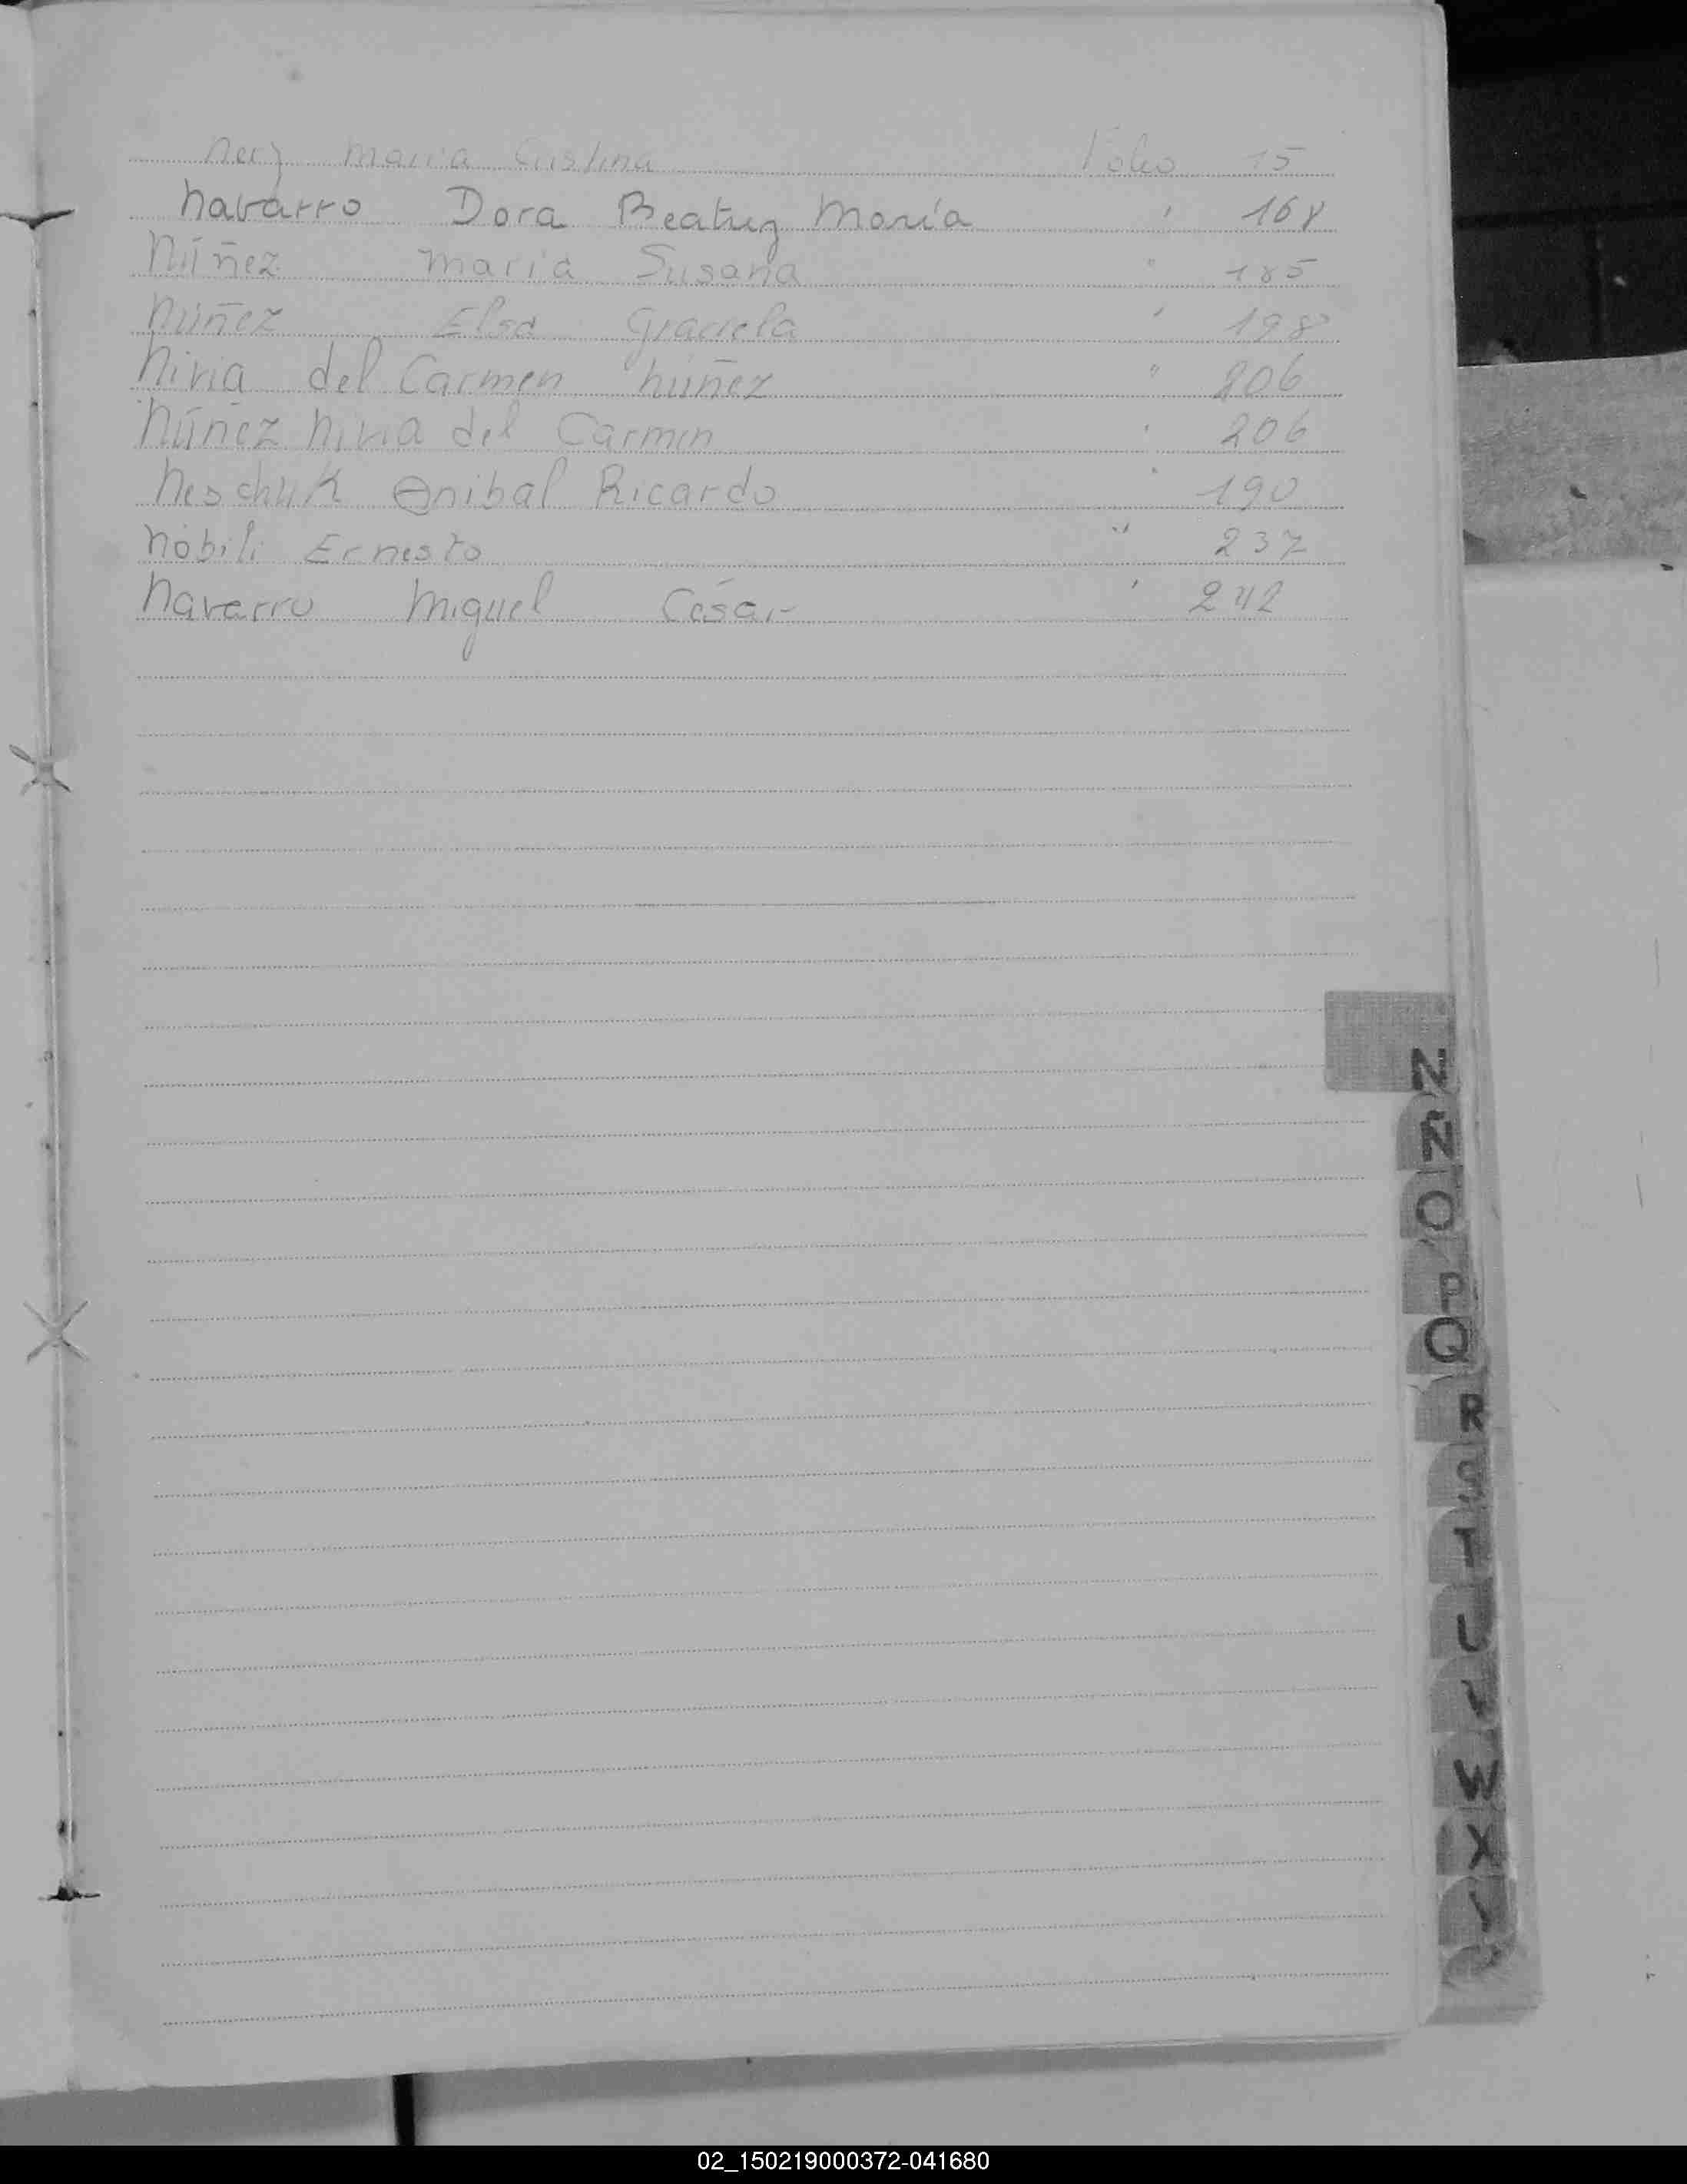 Nerz Maria Cristina Folio 15
Navarro Dora Beatriz María ' 168
Núñez Maria Susana " 185
Núñez Elsa Graciela ' 198
Niria del Carmen Núñez " 206
Núñez Niria del Carmen ' 206
Neschuk Anibal Ricardo " 190
Nóbili Ernesto " 237
Navarro Miguel César ' 242
N
Ñ
O
P
Q
R
S
T
U
V
W
X
Y
02_150219000372-041680